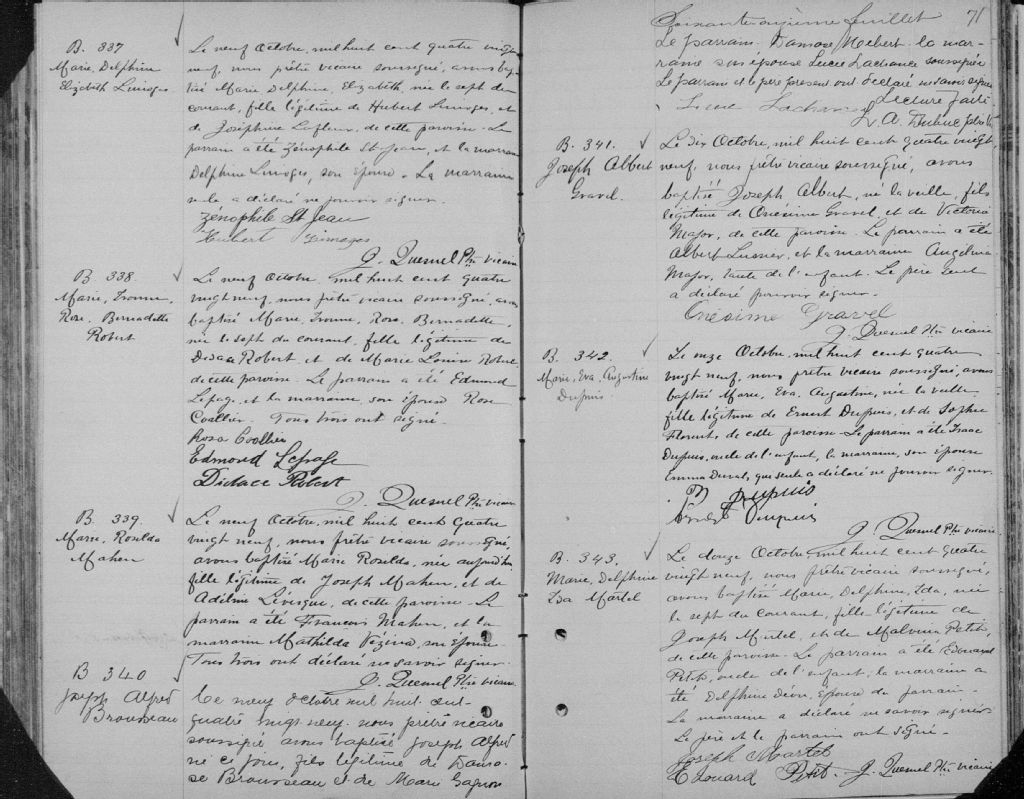 B. 337
Marie, Delphine
Elizabeth Limoges
Le neuf Octobre, mil huit cent quatre vingt
neuf, nous prêtre vicaire soussigné, avons bap-
tisé Marie Delphine, Elizabeth, née le sept du
courant, fille légitime de Hubert Limoges, et
de Joséphine Lafleur, de cette paroisse. Le
parrain a été Zénophile St Jean, et la marraine
Delphine Limoges, son épouse. La marraine
seule a déclaré ne pouvoir signer.
Zénophile St Jean
Hubert Limoges
J. Quesnel Ptre vicaire
B. 338
Marie, Ivonne,
Rose, Bernadette
Robert
Le neuf Octobre, mil huit cent quatre
vingt neuf, nous prêtre vicaire soussigné, avons
baptisé Marie, Ivonne, Rose, Bernadette,
née le sept du courant, fille légitime de
Didace Robert et de Marie Louise Robert
de cette paroisse. Le parrain a été Edmond
Lepage, et la marraine, son épouse Rose
Coallier. Tous trois ont signé.
Rosa Coallier
Edmond Lepage
Didace Robert
J. Quesnel Ptre vicaire
B. 339.
Marie, Roselda
Maheu
Le neuf Octobre, mil huit cent quatre
vingt neuf, nous prêtre vicaire soussigné,
avons baptisé Marie Roselda, née aujourd'hui
fille légitime de Joseph Maheu, et de
Adéline Lévesque, de cette paroisse. Le
parrain a été François Maheu, et la
marraine Mathilda Vézina, son épouse.
Tous trois ont déclaré ne savoir signer.
J. Quesnel Ptre vicaire
B 340
Joseph Alfred
Brousseau
Ce neuf octobre mil huit cent
quatre vingt neuf nous prêtre vicaire
soussigné avons baptisé Joseph Alfred
né ce jour, fils légitime de Dama-
se Brousseau et de Marie Gagnon
Soixante onzième feuillet 71
Le parrain, Damase Hebert la mar-
raine son épouse Lucie Lachance soussignée
Le parrain et le père présent ont déclaré ne savoir signer
Lucie Lachance Lecture faite
L. A. Dubuc ptre V.
B. 341.
Joseph Albert
Gravel.
Le dix Octobre, mil huit cent quatre vingt
neuf, nous prêtre vicaire soussigné, avons
baptisé Joseph Albert, né la veille, fils
légitime de Onésime Gravel, et de Victoria
Major, de cette paroisse. Le parrain a été
Albert Lusner, et la marraine Angélina
Major, tante de l'enfant. Le père seul
a déclaré pouvoir signer.
Onésime Gravel
J. Quesnel Ptre vicaire
B. 342.
Marie, Eva, Augustine
Dupuis
Le onze Octobre, mil huit cent quatre
vingt neuf, nous prêtre vicaire soussigné, avons
baptisé Marie, Eva, Augustine, née la veille
fille légitime de Ernest Dupuis, et de Sophie
Florent, de cette paroisse. Le parrain a été Isaac
Dupuis, oncle de l'enfant, la marraine, son épouse
Emma Duval, qui seule a déclaré ne pouvoir signer.
Dupuis
Ernest Dupuis
J. Quesnel Ptre vicaire
B. 343,
Marie, Delphine
Ida Martel
Le douze Octobre, mil huit cent quatre
vingt neuf, nous prêtre vicaire soussigné,
avons baptisé Marie, Delphine, Ida, née
le sept du courant, fille légitime de
Joseph Martel, et de Malvina Petit,
de cette paroisse. Le parrain a été Edouard
Petit, oncle de l'enfant, la marraine a
été Delphine Dion, épouse du parrain.
La marraine a déclaré ne savoir signer
Le père et le parrain ont signé.
Joseph Martel
Edouard Petit. J. Quesnel Ptre vicaire